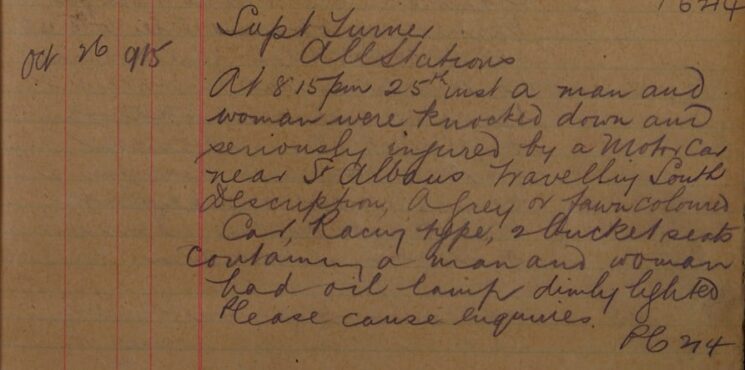 Supt Turner
All Stations
Oct 26 915
At 8 15pm 25th inst a man and
woman were knocked down and
seriously injured by a Motor Car
near St Albans travelling South
Description, A grey or fawn coloured
Car, Racing type, 2 bucket seats
containing a man and woman
had oil lamp dimly lighted
Please cause enquiries.
PC 214